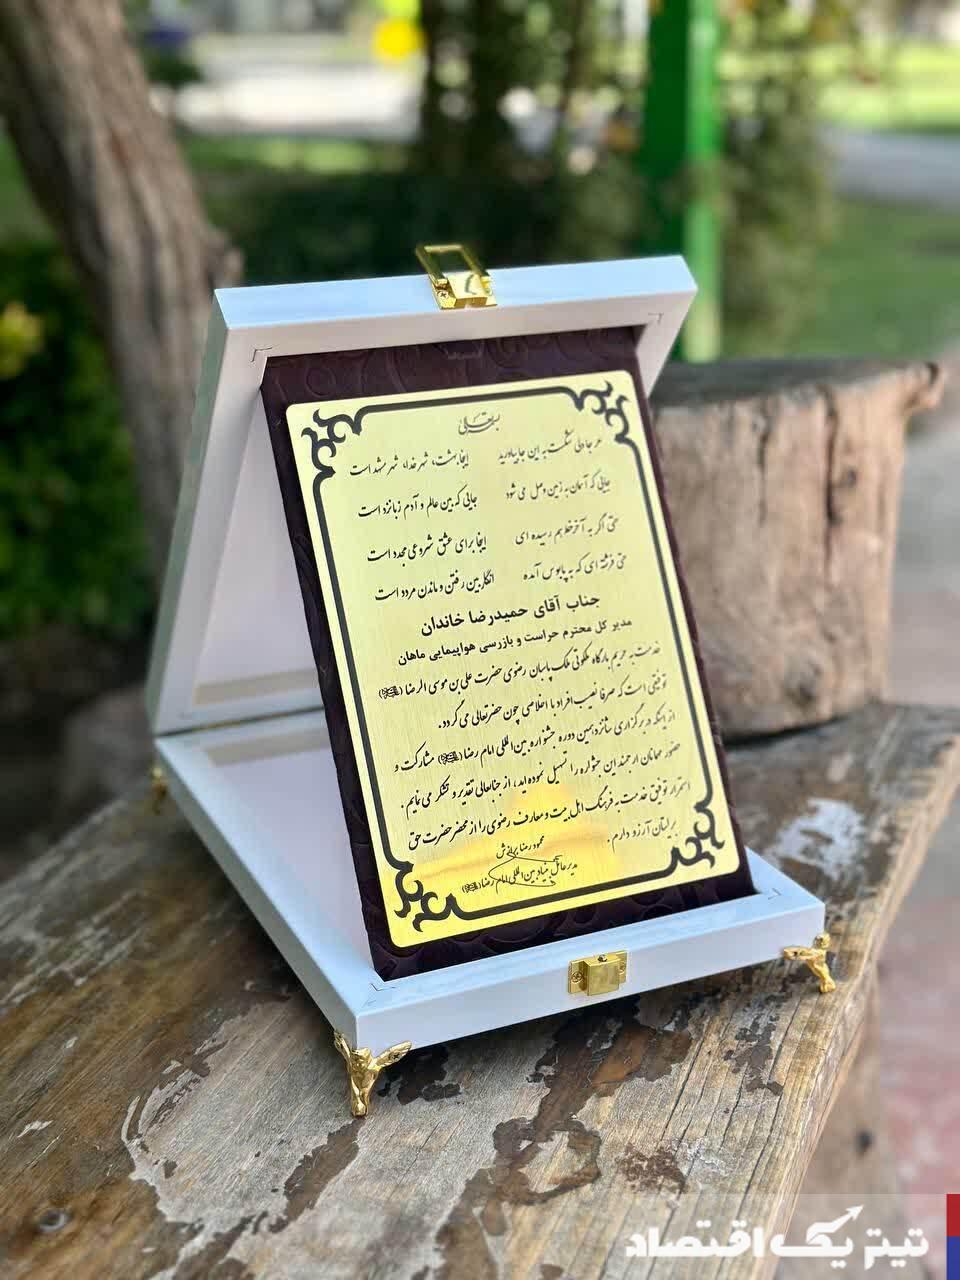 بسمه تعالی
هر جا دلی شکست به این جا بیاورید    اینجا بهشت، شهر خدا، شهر مشهد است
جایی که آسمان به زمین وصل می شود    جایی که بین عالم و آدم زبانزد است
حتی اگر به آخر خط هم رسیده ای    اینجا برای عشق شروعی مجدد است
حتی فرشته ای که به پابوس آمده    انگار بین رفتن و ماندن مردد است
جناب آقای حمیدرضا خاندان
مدیر کل محترم حراست و بازرسی هواپیمایی ماهان
خدمت به حریم بارگاه ملکوتی ملک پاسبان رضوی حضرت علی بن موسی الرضا (ع)
توفیقی است که صرفا نصیب افراد با اخلاصی چون حضرتعالی می گردد.
از اینکه در برگزاری شانزدهمین دوره جشنواره بین المللی امام رضا (ع) مشارکت و
حضور مهمانان ارجمند این جشنواره را تسهیل نموده اید، از جنابعالی تقدیر و تشکر می نمایم.
استمرار توفیق خدمت به فرهنگ اهل بیت و معارف رضوی را از محضر حضرت حق
برایتان آرزو دارم.
محمود رضا برازش
مدیر عامل بنیاد بین المللی امام رضا (ع)
تیتر یک اقتصاد